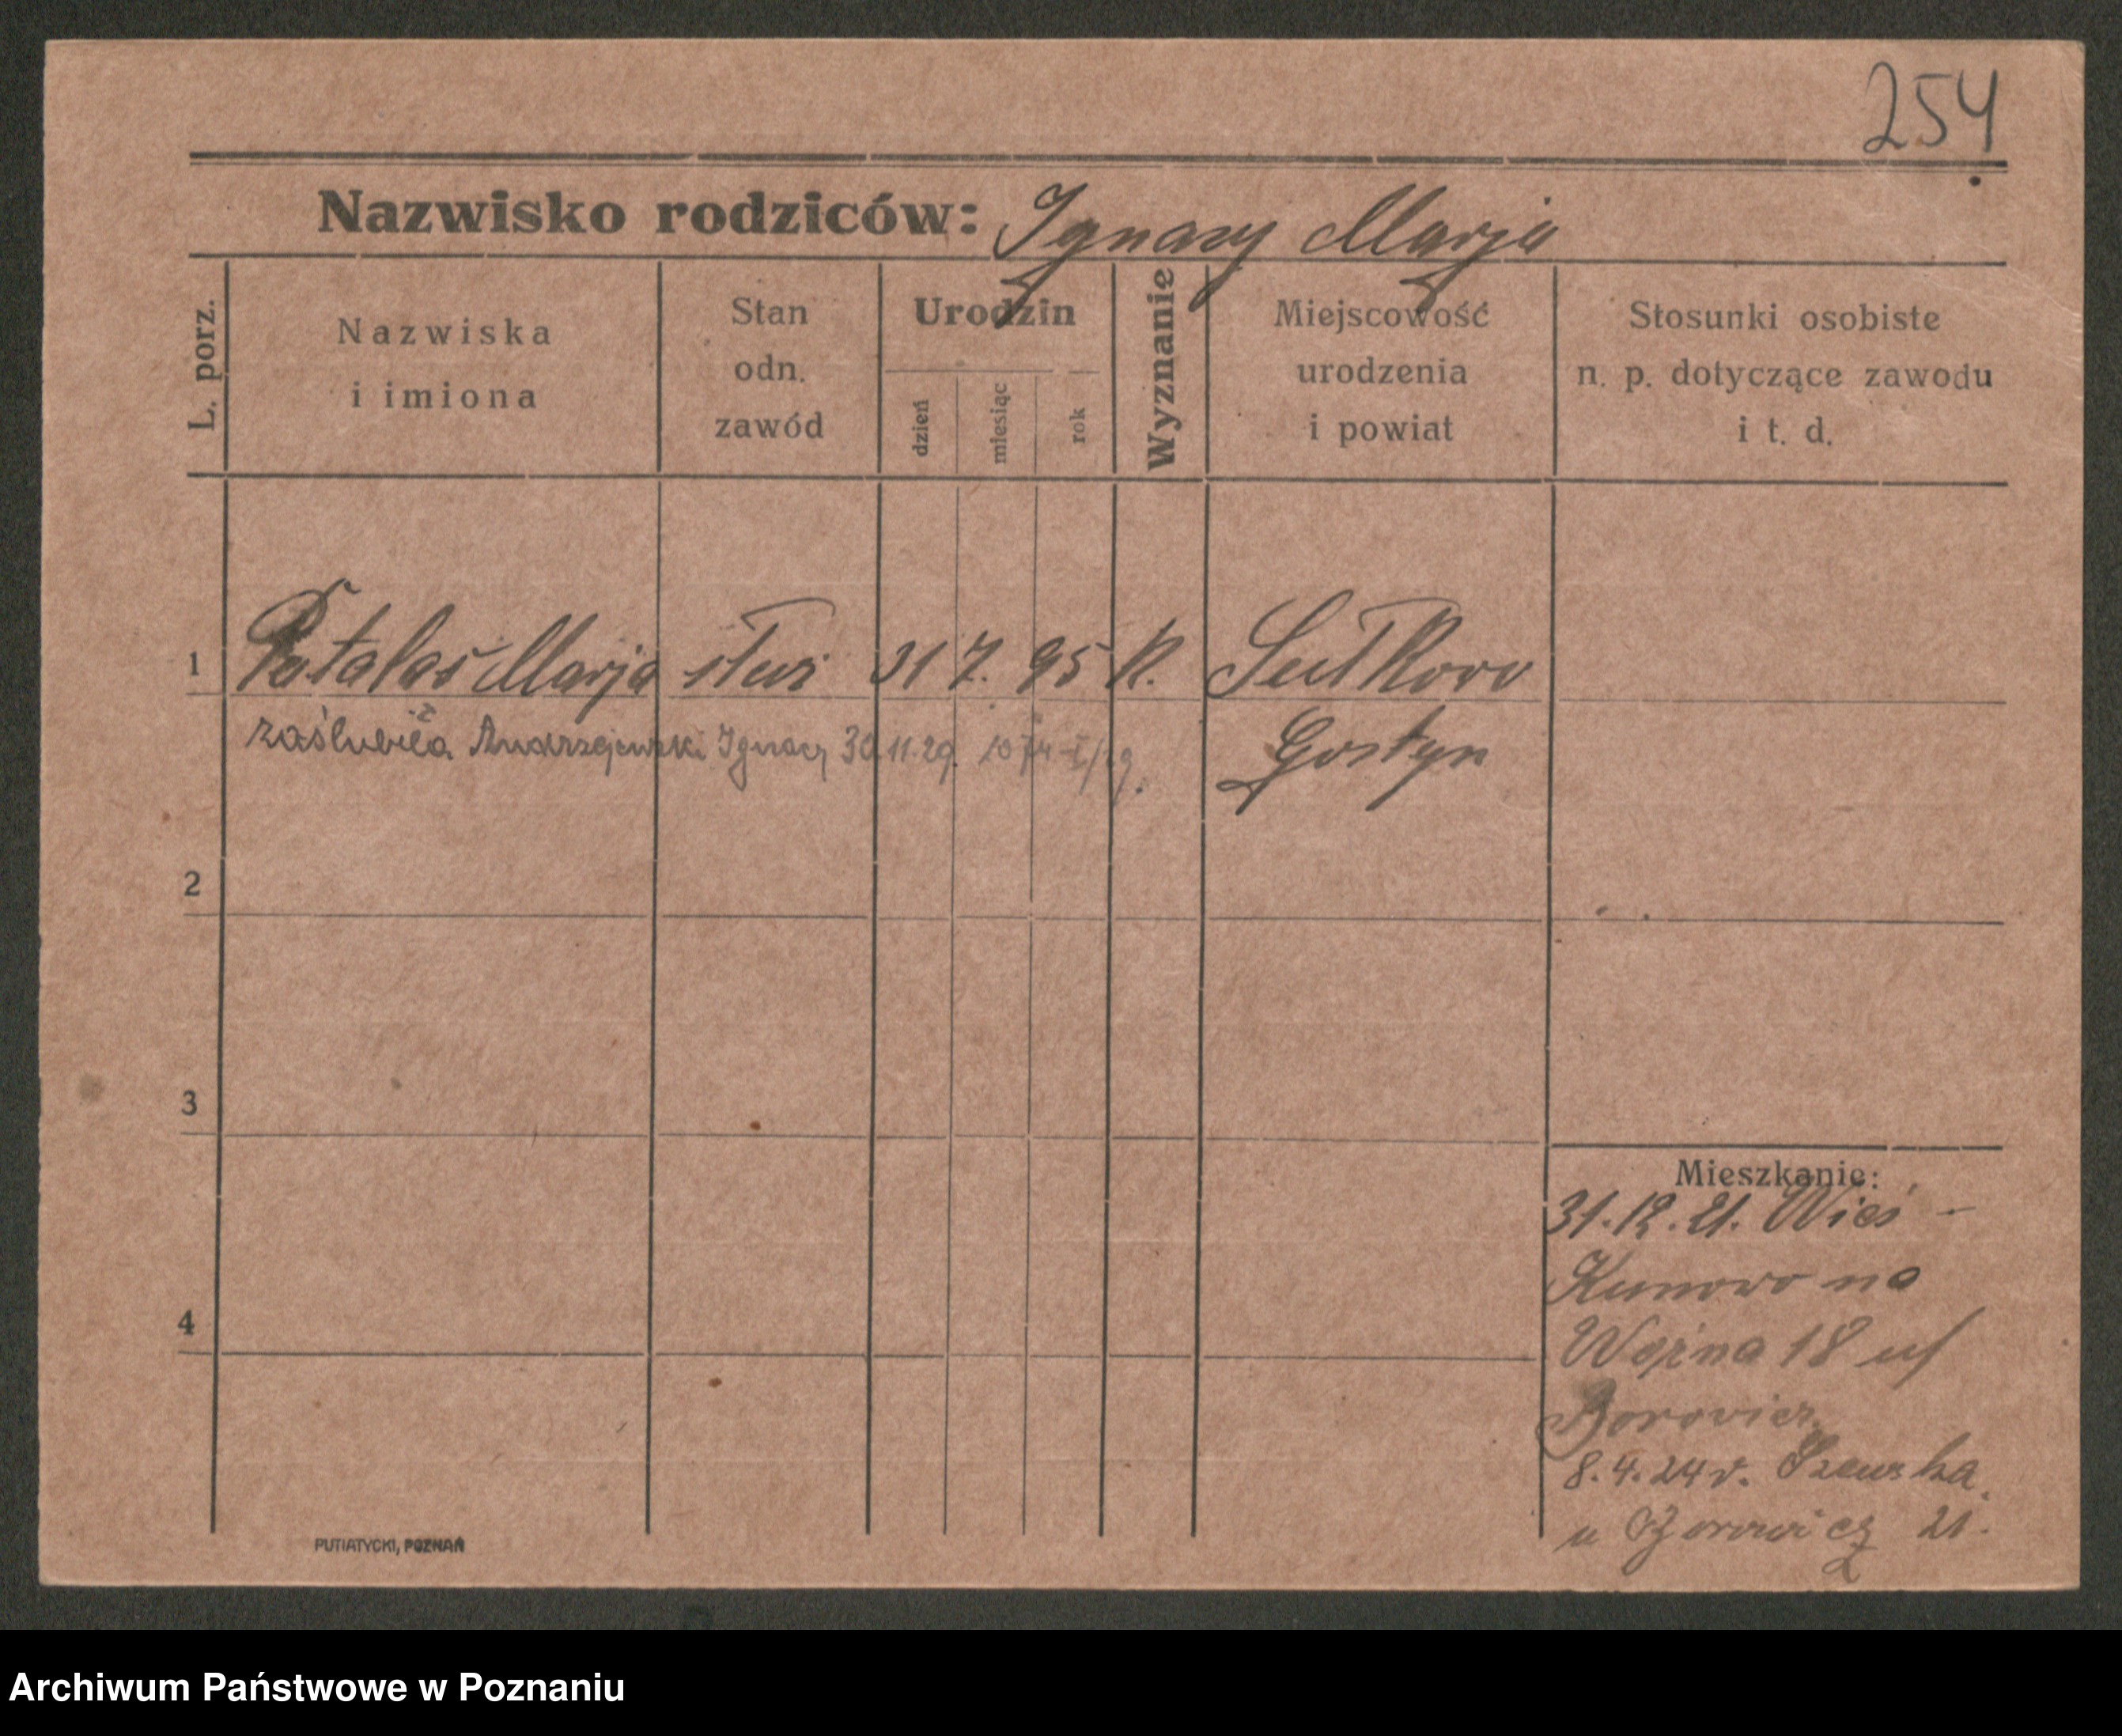 254
Nazwisko rodziców: Ignacy Marja
L. porz.
Nazwiska
i imiona
Stan
odn.
zawód
Urodzin
dzień
miesiąc
rok
Wyznanie
Miejscowość
urodzenia
i powiat
Stosunki osobiste
n. p. dotyczące zawodu
i t. d.
1 Patalas Marja służ 31 7. 95 K. Sułkowo
zaślubiła Andrzejewski Ignacy 30.11.29. Gostyn
2
3
4
Mieszkanie:
31.12.21. Wieś -
Kunowo na
18 u/
Borowicz
8.4.24 r. Szewska
u Borowicz 21.
PUTIATYCKI, POZNAŃ
Archiwum Państwowe w Poznaniu